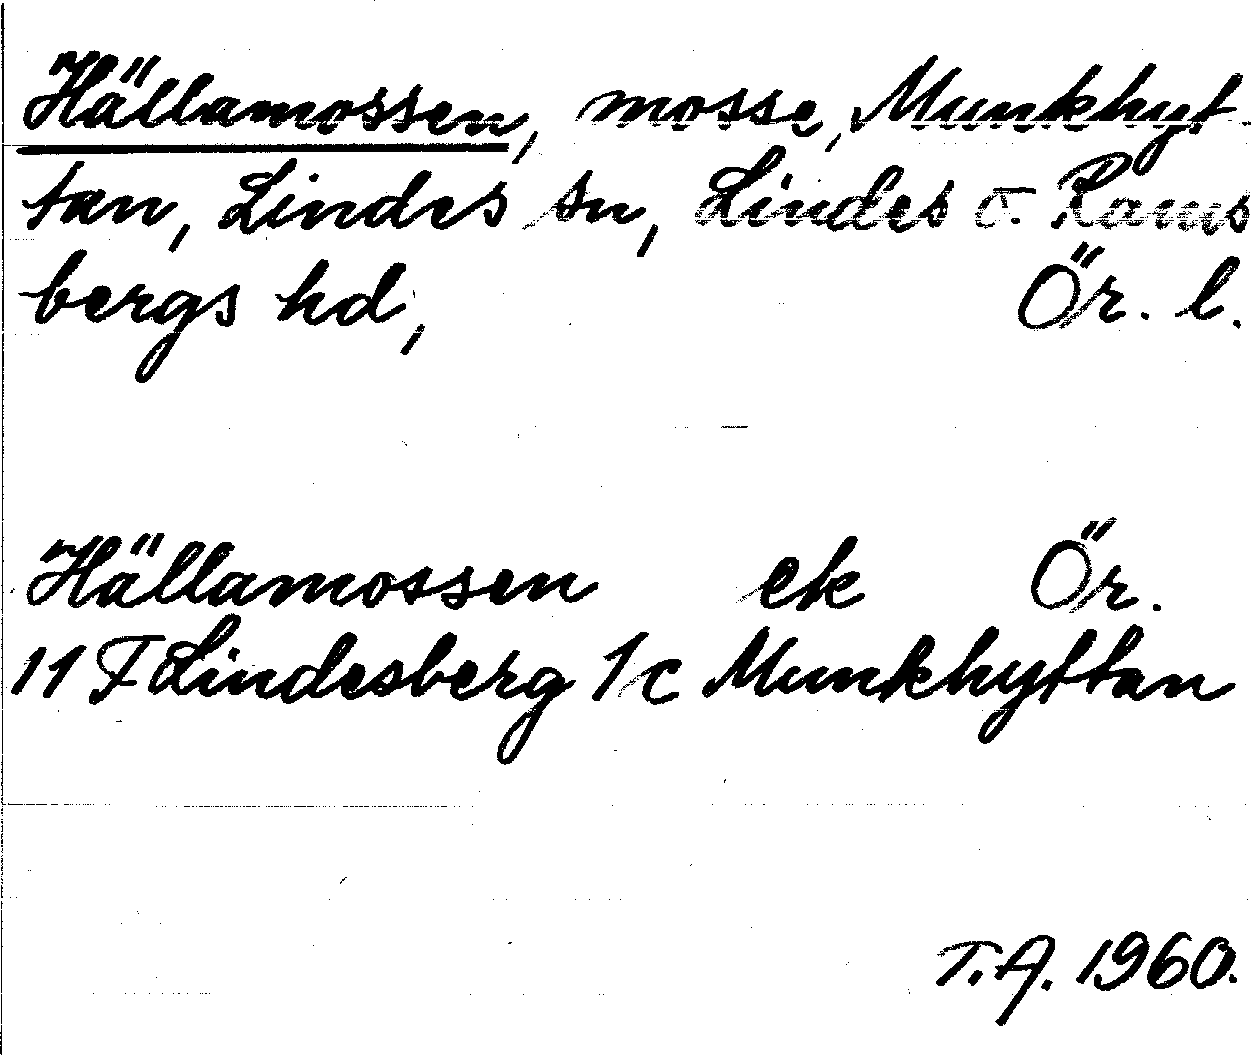 Hällamossen, mosse, Munkhyt-
tan, Lindes sn, Lindes o. Rams
bergs hd, Ör. l.
Hällamossen ek Ör.
11 F Lindesberg 1/c Munkhyttan
T.A. 1960.